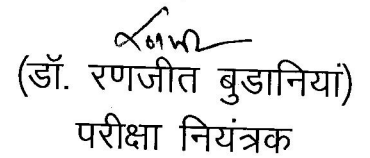 (डॉ. रणजीत बुडानियां)
परीक्षा नियंत्रक